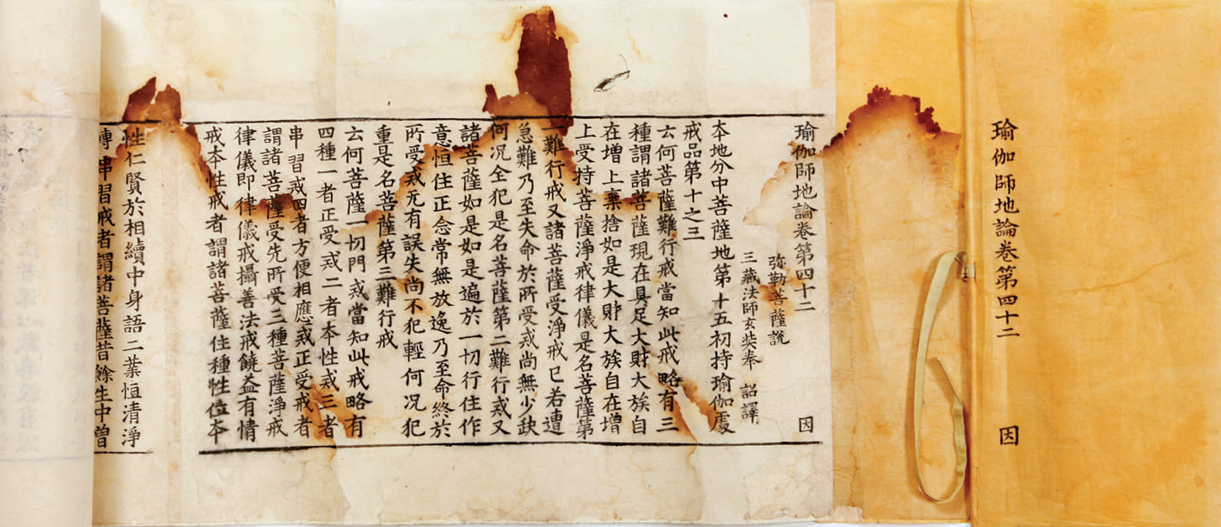 瑜伽師地論卷第四十二 因
瑜伽師地論卷第四十二 因
弥勒菩薩說
三藏法師玄奘奉 詔譯
本地分中菩薩地第十五初持瑜伽處
戒品第十之三
云何菩薩難行戒當知此戒略有三
種謂諸菩薩現在具足大財大族自
在增上棄捨如是大財大族自在增
上受持菩薩淨戒律儀是名菩薩第
一難行戒又諸菩薩受淨戒已若遭
急難乃至失命於所受戒尚無少缺
何況全犯是名菩薩第二難行戒又
諸菩薩如是如是遍於一切行住作
意恒住正念常無放逸乃至命終於
所受戒无有誤失尚不犯輕何况犯
重是名菩薩第三難行戒
云何菩薩一切門戒當知此戒略有
四種一者正受戒二者本性戒三者
串習戒四者方便相應戒正受戒者
謂諸菩薩受先所受三種菩薩淨戒
律儀即律儀戒攝善法戒饒益有情
戒本性戒者謂諸菩薩住種性位本
性仁賢於相續中身語二業恒清淨
轉串習戒者謂諸菩薩昔餘生中曾